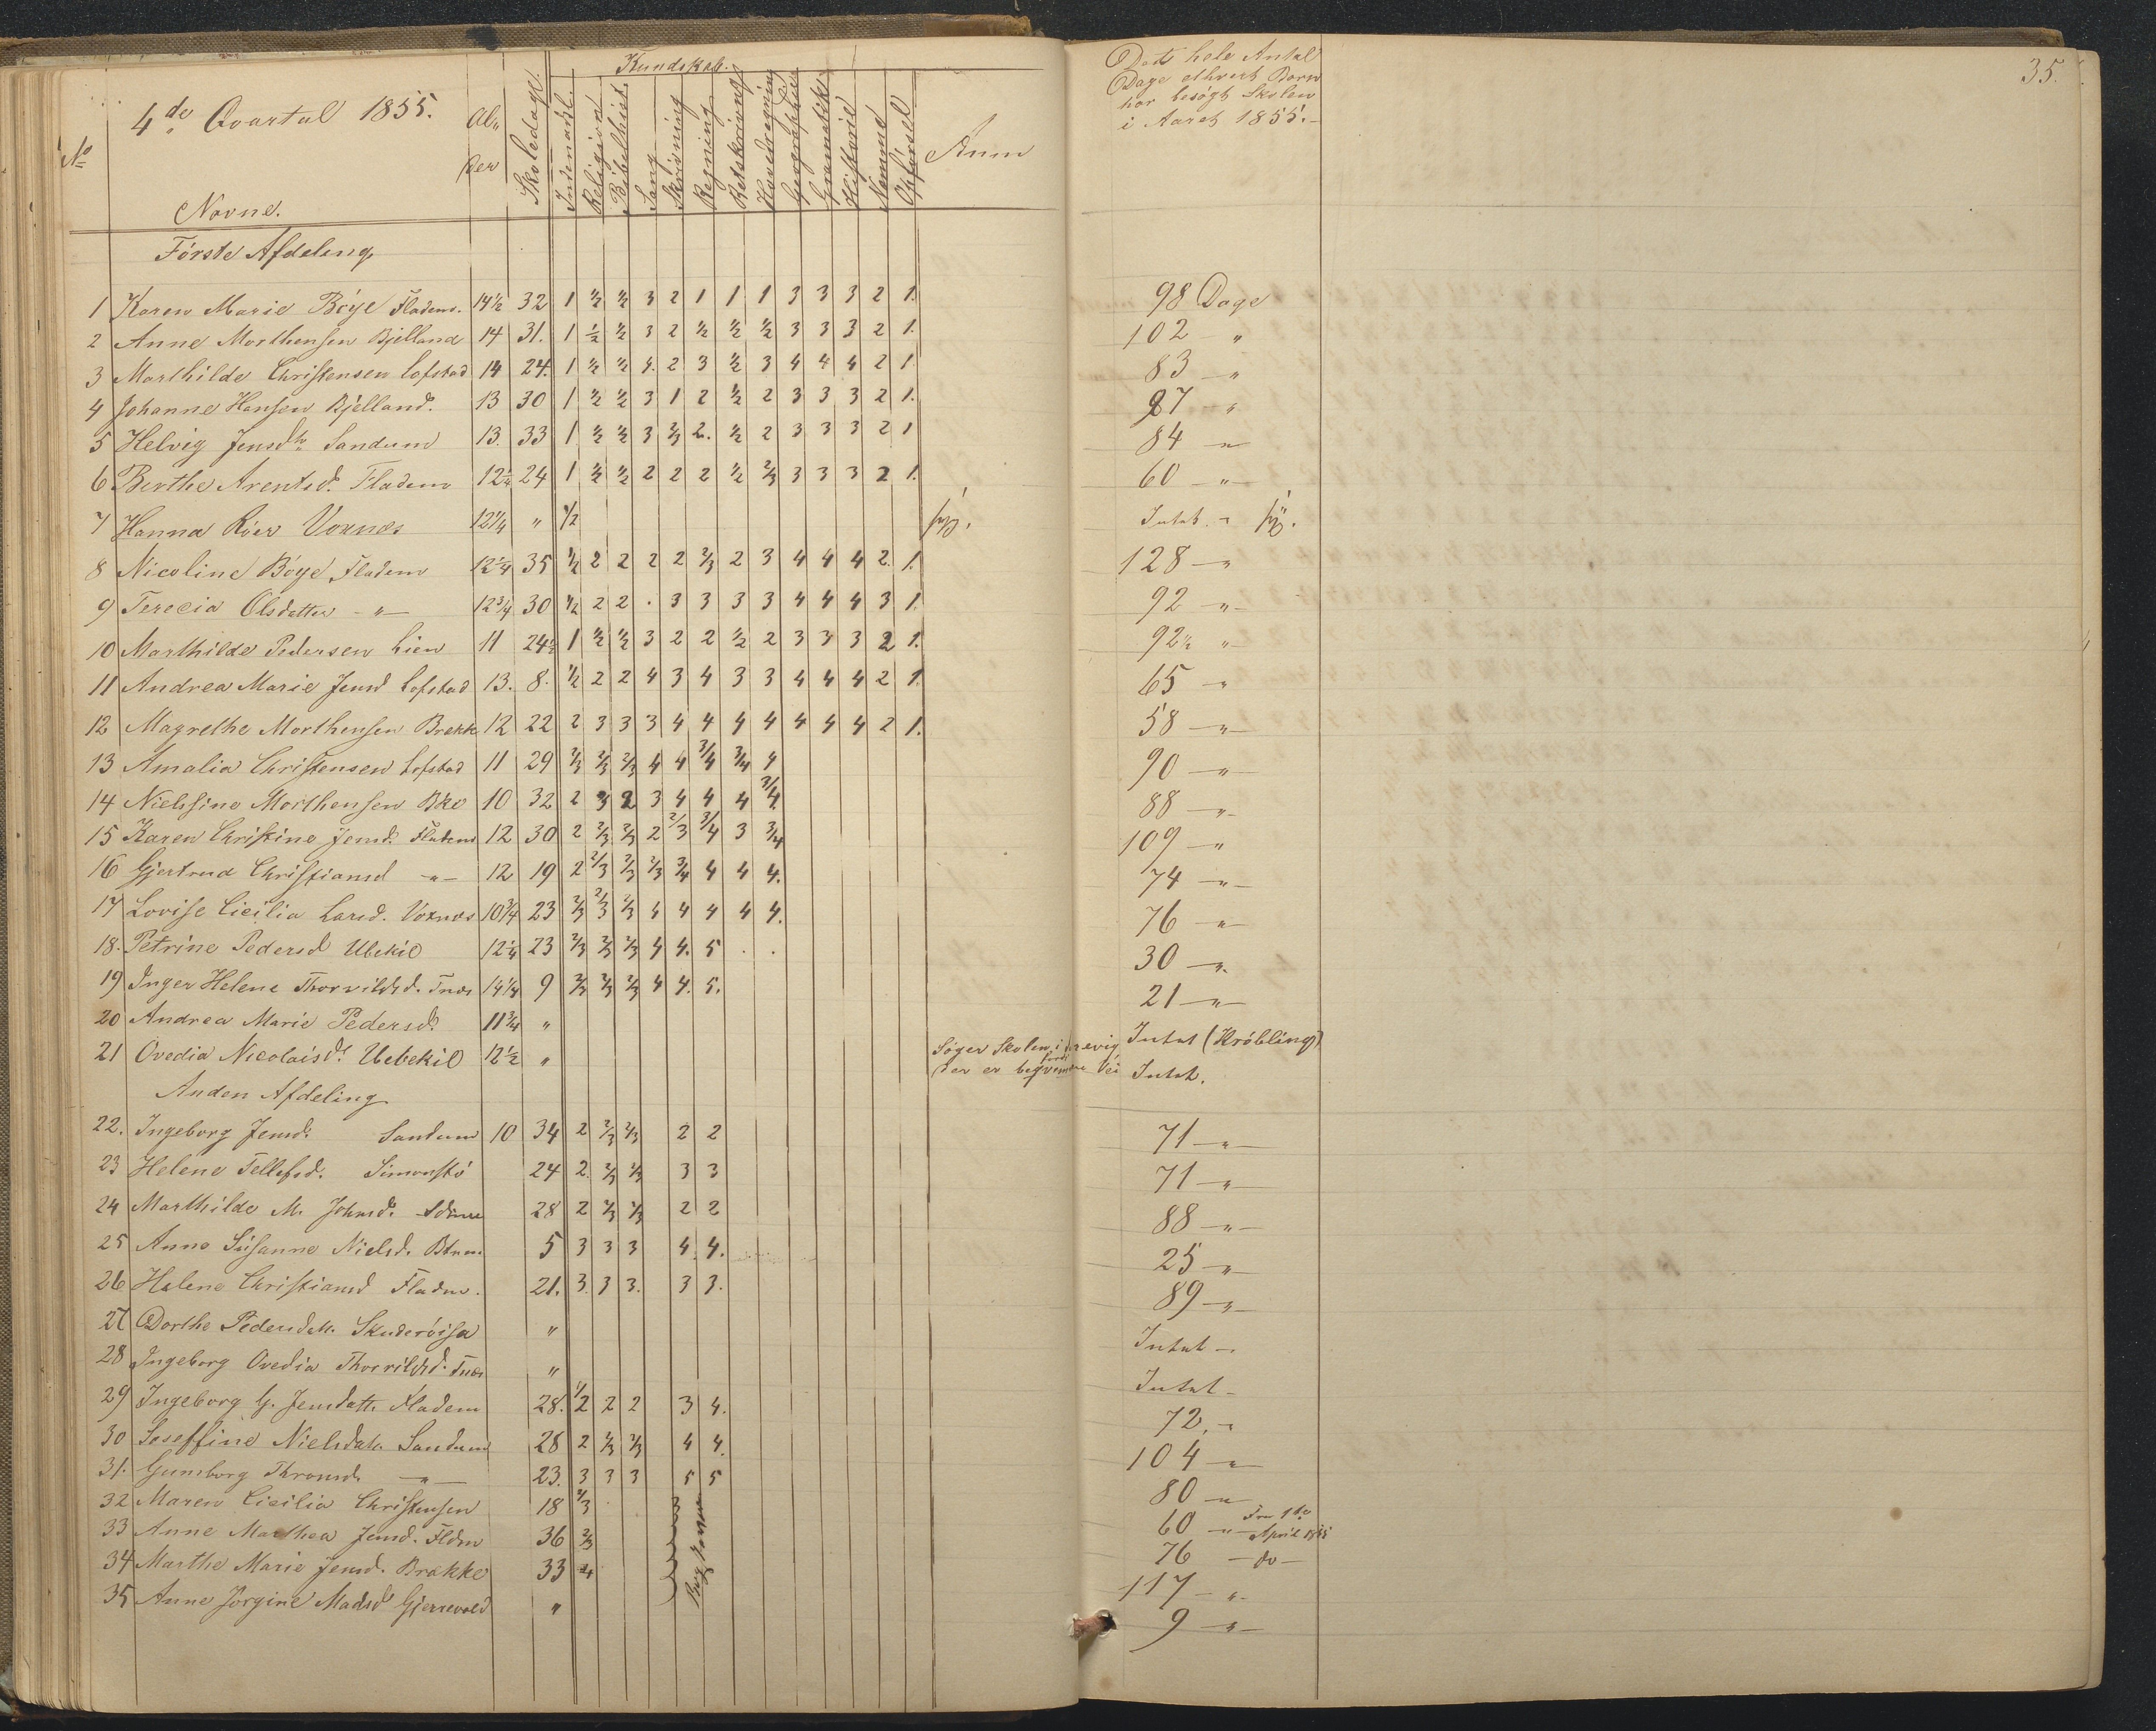 4de Qvartal 1855.
No
Navne.
Al-
der
Skoledage
Kundskab.
Indenadl.
Religion
Bibelhist.
Sang
Skrivning
Regning
Retskrivning
Hovedregning
Geographie
Gramatik
Historie
Nemme
Opførsel
Anm
Det hele Antal
Dage ethvert Barn
har besøgt Skolen
i Aaret 1855.-
35.
Første Afdeling
1 Karen Marie Böye Fladem. 14½ 32 1 ½ ½ 3 2 1 1 1 3 3 3 2 1. 98 Dage
2 Anne Morthensen Bjelland 14 31. 1 ½ ½ 3 2 ½ ½ ½ 3 3 3 2 1. 102 - "
3 Marthilde Christensen Lofstad 14 24. 1 ½ ½ 4. 2 3 ½ 3 4 4 4 2 1. 83 - "
4 Johanne Hansen Bjelland. 13 30 1 ½ ½ 3 1 2 ½ 2 3 3 3 2 1. 87 - "
5 Helvig Jensdtr Sandum 13. 33 1 ½ ½ 3 2/3 2. ½ 2 3 3 3 2 1 84 - "
6 Berthe Arentsd. Fladem 12¼ 24 1 ½ ½ 2 2 2 ½ 2/3 3 3 3 2 1. 60 - "
7 Hanna Röer Voxnæs 12¼ " ½ syg. Intet. - syg.
8 Nicoline Böye Fladem 12¼ 35 ½ 2 2 2 2 2/3 2 3 4 4 4 2. 1. 128 - "
9 Terecia Olsdatter - " - 12¾ 30 ½ 2 2 . 3 3 3 3 4 4 4 3 1. 92 - " -
10 Marthilde Pedersen Lien 11 24½ 1 ½ ½ 3 2 2 ½ 2 3 3 3 2 1. 92½ "
11 Andrea Marie Jensd Lofstad 13. 8. ½ 2 2 4 3 4 3 3 4 4 4 2 1. 65 - "
12 Magrethe Morthensen Brekk 12 22 2 3 3 3 4 4 4 4 4 4 4 2 1. 58 - "
13 Amalia Christensen Lofstad 11 29 2/3 2/3 2/3 4 4 3/4 3/4 4 90 - "
14 Nielsine Morthensen Bke 10 32 2 3 2 3 4 4 4 3/4. 88 - "
15 Karen Christine Jensd. Fladem 12 30 2 2/3 2/3 2 2/3 3/4 3 3/4 109 - "
16 Gjertrud Christiansd - " - 12 19 2 2/3 2/3 2/3 3/4 4 4 4. 74 - "
17 Lovise Cicilia Larsd. Voxnæs 10¾ 23 2/3 2/3 2/3 4 4 4 4 4. 76 - "
18. Petrine Pedersd Ubekil 12¼ 23 2/3 2/3 2/3 4 4. 5 . . 30 - "
19 Inger Helene Thorvildsd. Tnæs 14¼ 9 2/3 2/3 2/3 4 4. 5. 21 - "
20 Andrea Marie Pedersd. 11¾ " Intet (Kröbling)
21 Ovedia Nicolaisdr Uebekil 12½ " Søger Skolen i
der er beqvemere Vei Intet.
Anden Afdeling
22. Ingeborg Jensd. Sandum 10 34 2 2/3 2/3 2 2 71 - "
23 Helene Tellefsd. Simonstö 24 2. 2/3 2/3 3 3 71 - "
24 Marthilde M. Johnsd. 28 2 2/3 2/3 2 2 88 - "
25 Anne Susanne Nielsd. 5 3 3 3 4. 4. 25 - "
26 Helene Christiansd Fladm. 21. 3. 3 3. 3 3. 89 - "
27 Dorthe Pedersdatt. Skuderöisa " Intet -
28 Ingeborg Ovedia Thorvildsd. Tnæs " Intet -
29 Ingeborg G. Jensdatt. Fladem 28. ½ 2 2 3 4. 72. "
30 Joseffine Nielsdatt. Sandum 28 2 2/3 2/3 4 4. 104 - "
31. Gunborg Thronsd. - " - 23. 3 3 3 5 5 80 - "
32 Maren Cicilia Christensen 18 2/3 60 - " - Fra 1ste
April 1855
33 Anne Marthea Jensd. Fldm 36 2/3 76 - do -
34 Marthe Marie Jensd. Brække 33 117 - "
35 Anne Jörgine Madsd Gjerrevold " 9 - "